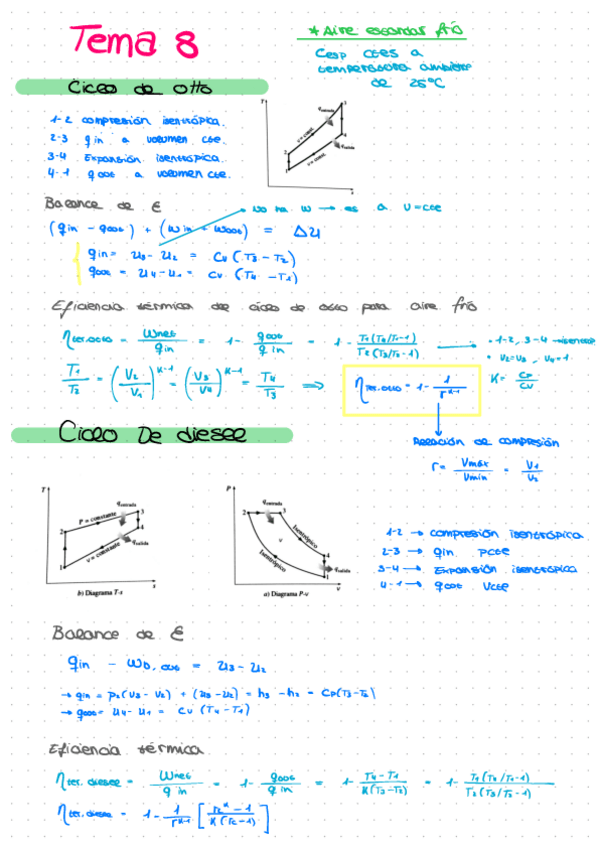 Tema 8
* Aire estandar frío
Cesp ctes a
temperatura ambiente
de 25°C
Ciclo de otto
1-2 compresión isentrópica.
2-3 qin a volumen cte.
3-4 Expansión isentropica.
4-1 qout a volumen cte.
T
qentrada
3
v = const.
4
qsalida
2
v = const.
1
s
Balance de E
no ha W → es a V=cte
(qin - qout) + (Win - Wout) = Δu
qin = u3 - u2 = Cv (T3 - T2)
qout = u4 - u1 = Cv (T4 - T1)
Eficiencia térmica del ciclo de otto para aire frío
ηter,otto = Wnet/qin = 1 - qout/qin = 1 - T1(T4/T1-1)/T2(T3/T2-1)
• 1-2, 3-4 → isentrop
• V2=V3, V4=1
T1/T2 = (V2/V1)^K-1 = (V3/V4)^K-1 = T4/T3 ⇒ ηter,otto = 1 - 1/r^K-1
K = Cp/Cv
Relación de compresión
r = Vmáx/Vmin = V1/V2
Ciclo De diesel
T
qentrada
P = constante
3
4
2
qsalida
v = constante
1
s
b) Diagrama T-s
P
qentrada
2
3
Isentrópico
4
Isentrópico
qsalida
1
v
a) Diagrama P-v
1-2 → compresión isentrópica
2-3 → qin Pcte
3-4 → Expansión isentrópica
4-1 → qout Vcte
Balance de E
qin - Wb,out = u3 - u2
→ qin = P2(V3 - V2) + (u3 - u2) = h3 - h2 = Cp(T3-T2)
→ qout = u4 - u1 = Cv (T4 - T1)
Eficiencia térmica
ηter,diesel = Wnet/qin = 1 - qout/qin = 1 - T4-T1/K(T3-T2) = 1 - T1(T4/T1-1)/T2(T3/T2-1)
ηter,diesel = 1 - 1/r^K-1 [rc^K - 1/K(rc-1)]